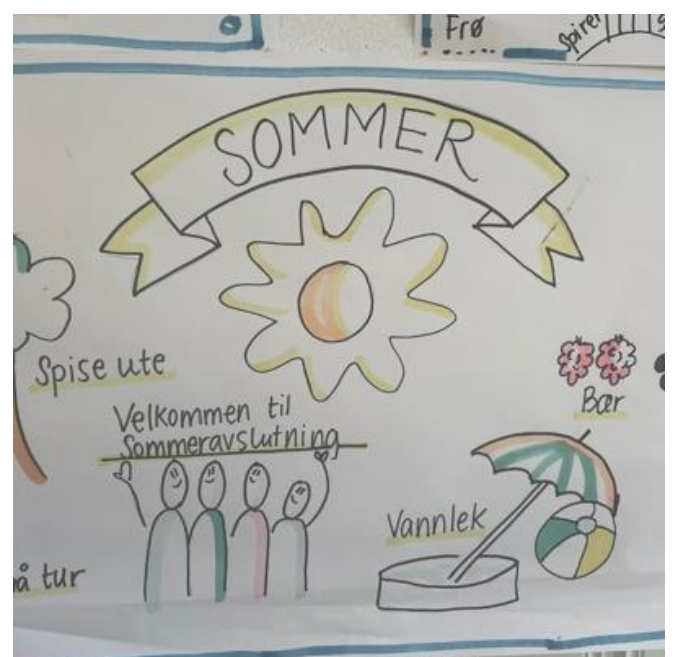 Frø
Spirer
SOMMER
Spise ute
Velkommen til
Sommeravslutning
Bær
Vannlek
å tur